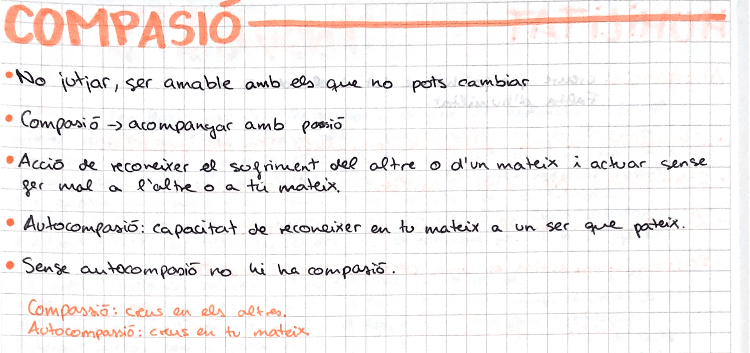 COMPASIÓ
• No jutjar, ser amable amb els que no pots cambiar
• Compasió → acompanyar amb passió
• Acció de reconeixer el sofriment del altre o d'un mateix i actuar sense
fer mal a l'altre o a tú mateix.
• Autocompasió: capacitat de reconeixer en tu mateix a un ser que pateix.
• Sense autocompasió no hi ha compasió.
Compassió: creus en els altres.
Autocompassió: creus en tu mateix.